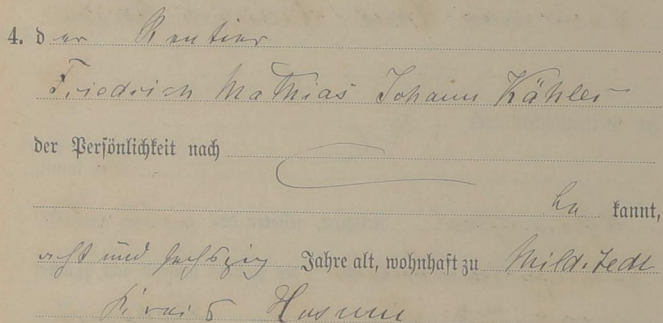 4. der Rentier
Friedrich Mathias Johann Kähler
der Persönlichkeit nach
be kannt,
acht und sechszig Jahre alt, wohnhaft zu Mildstedt
Kreis Husum